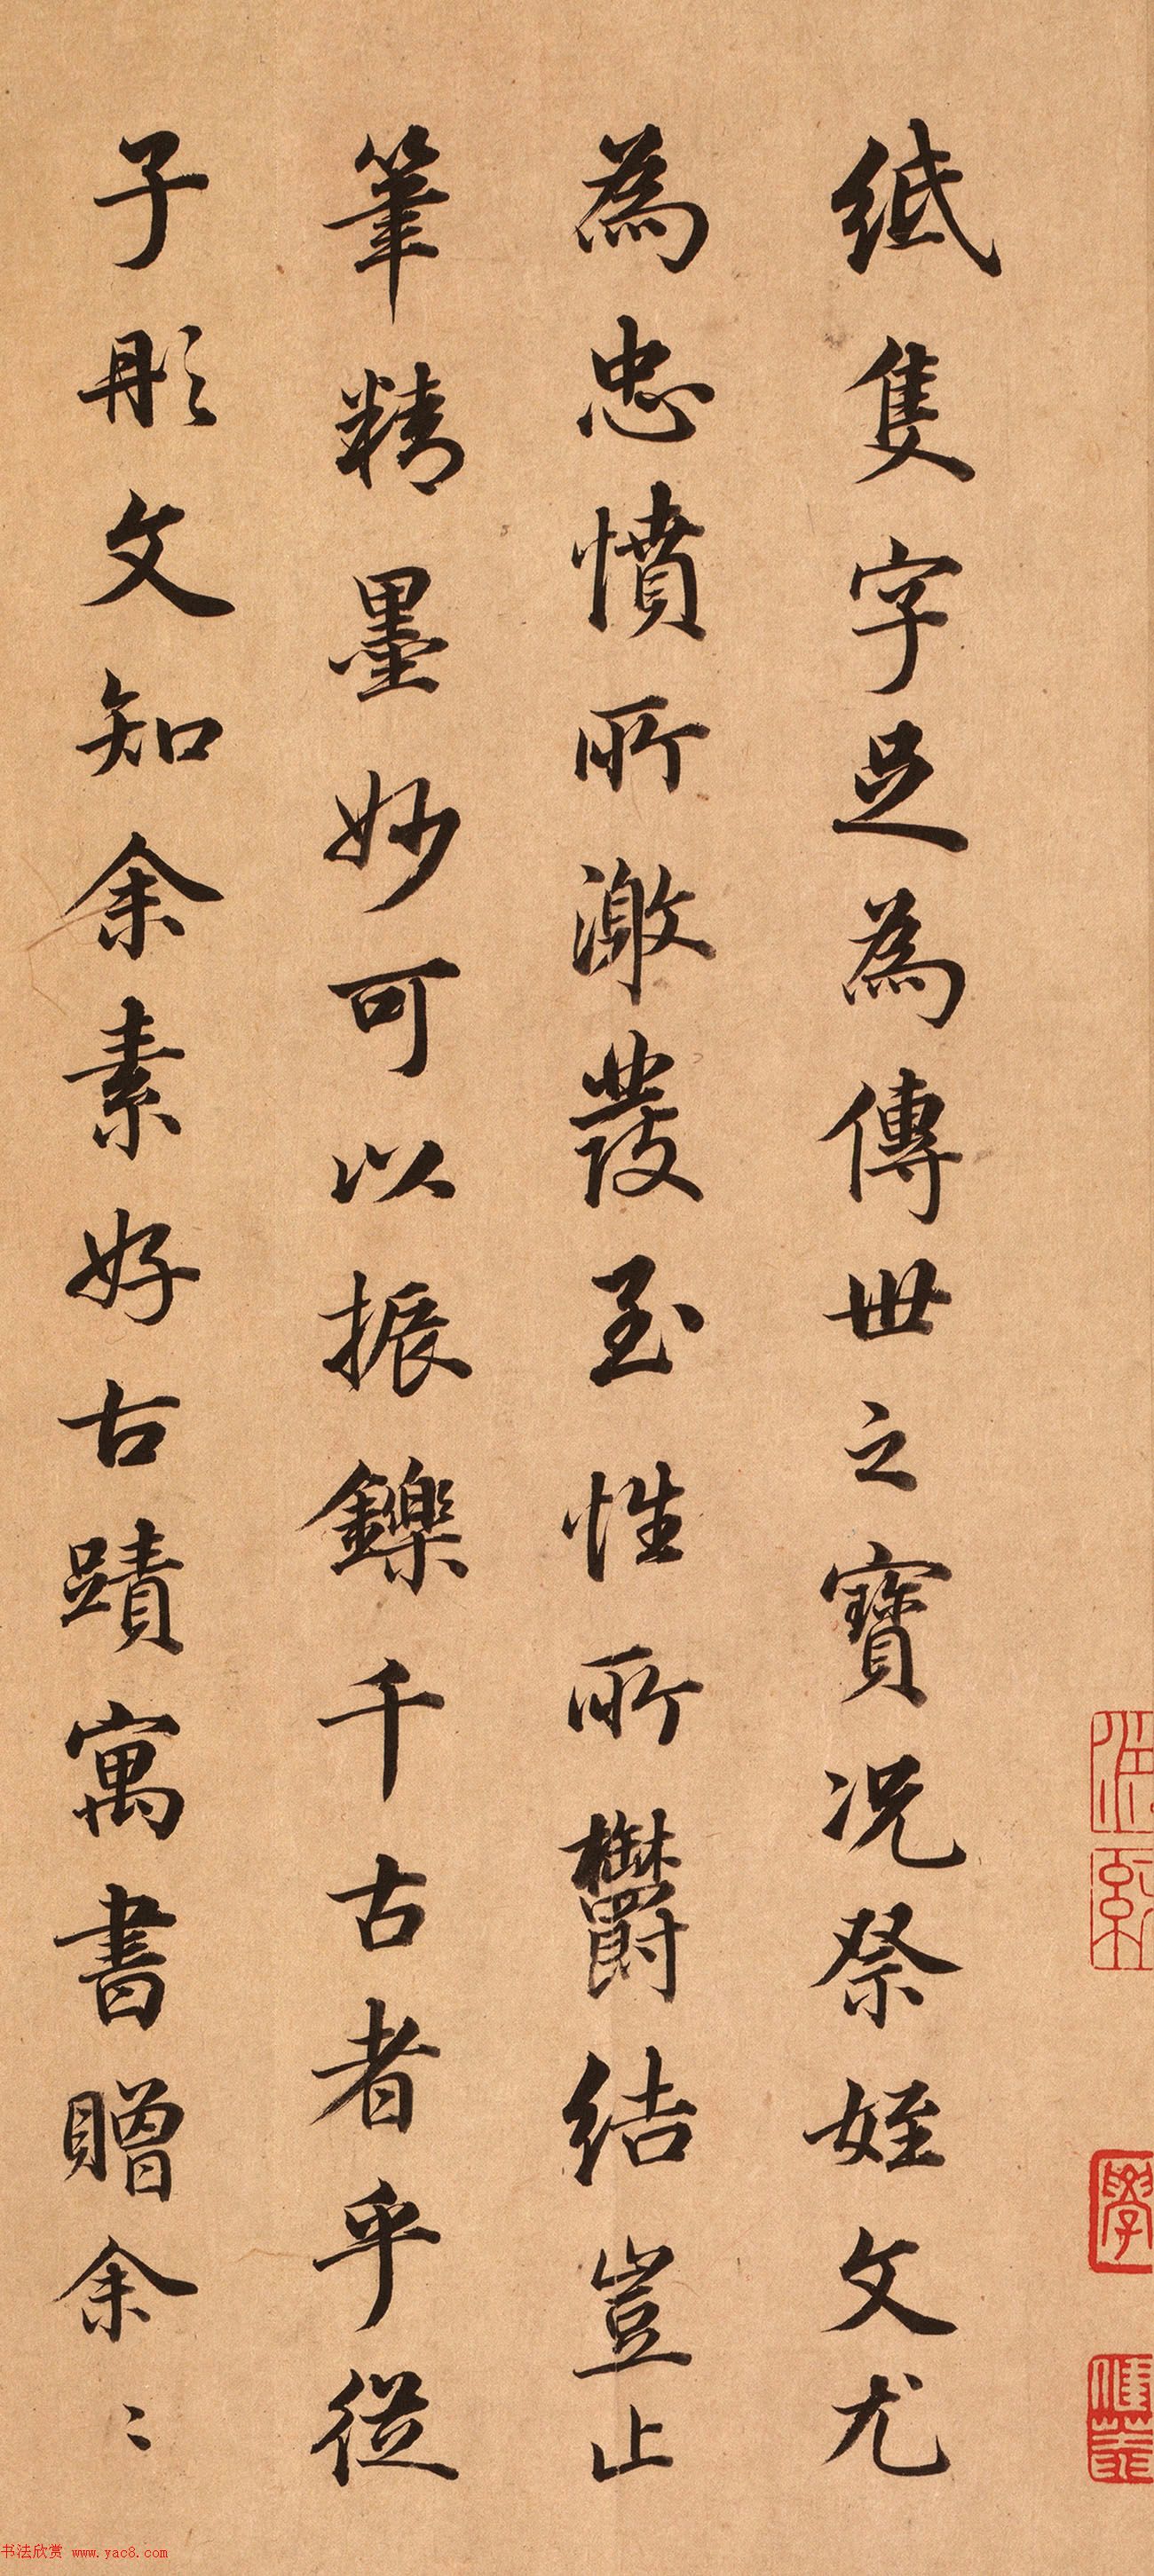 紙隻字足為傳世之寶況祭姪文尤
為忠憤所激發至性所鬱結豈止
筆精墨妙可以振鑠千古者乎從
子彤文知余素好古蹟寓書贈余〻
书法欣赏 www.yac8.com